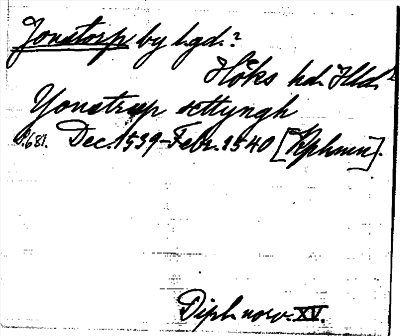 Jonstorp by l.gd.?
Höks hd. Hlld.
Yonstrup settyngh
s. 681. Dec. 1539-Febr. 1540 [Kphmn].
Dipl. norv. XV.